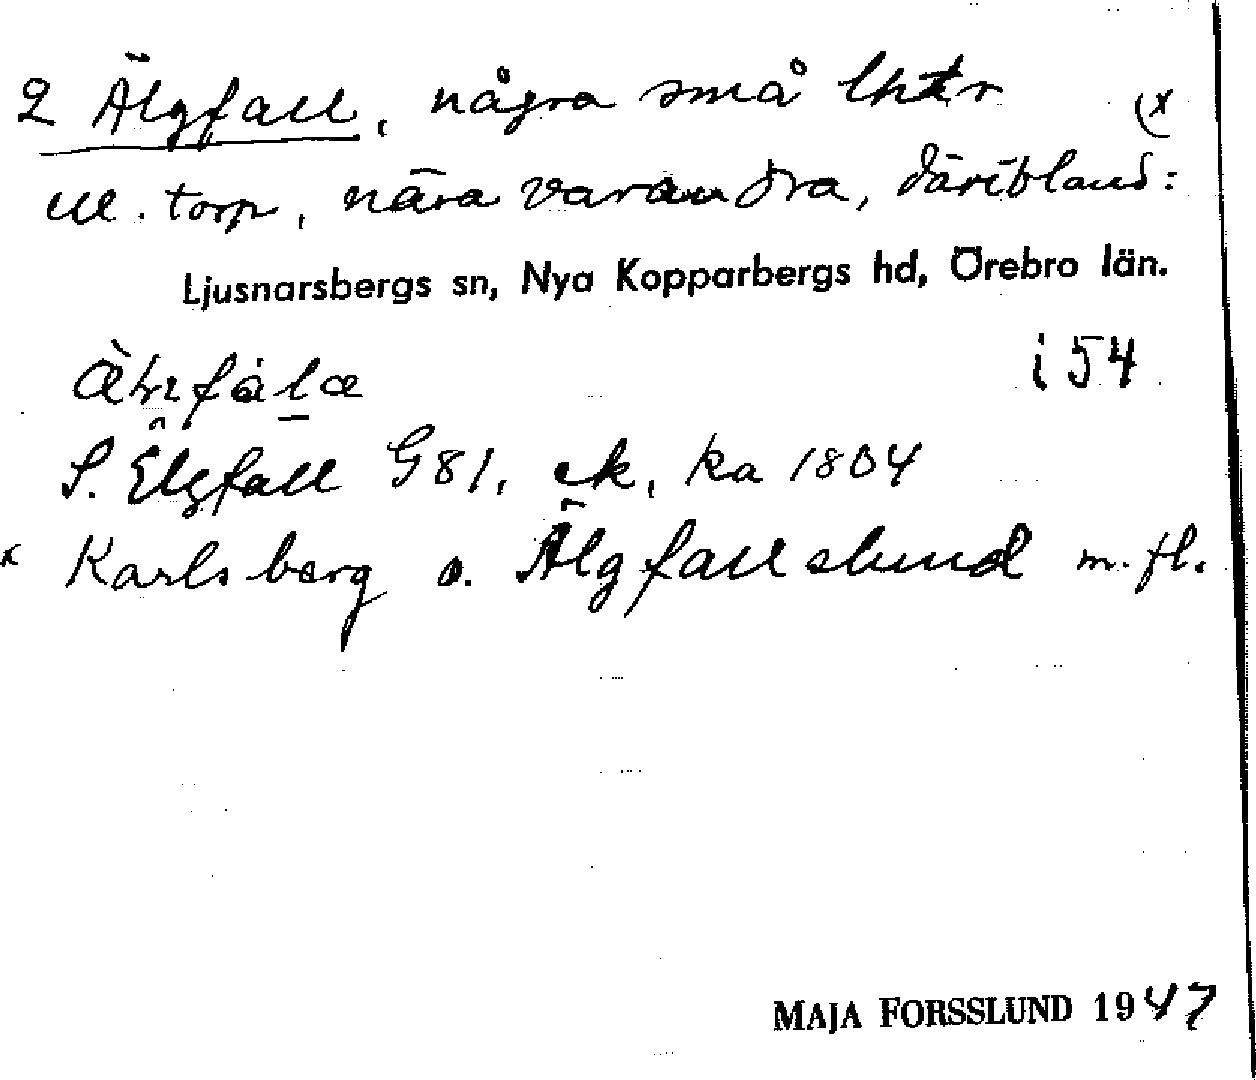 2 Älgfall, några små lhtr (x
ell. torp, nära varandra, däribland:
Ljusnarsbergs sn, Nya Kopparbergs hd, Örebro län.
i 54
S. Elgfall G81, ek, ka 1804
x Karlsberg o. Älgfallslund m. fl.
MAJA FORSSLUND 1947